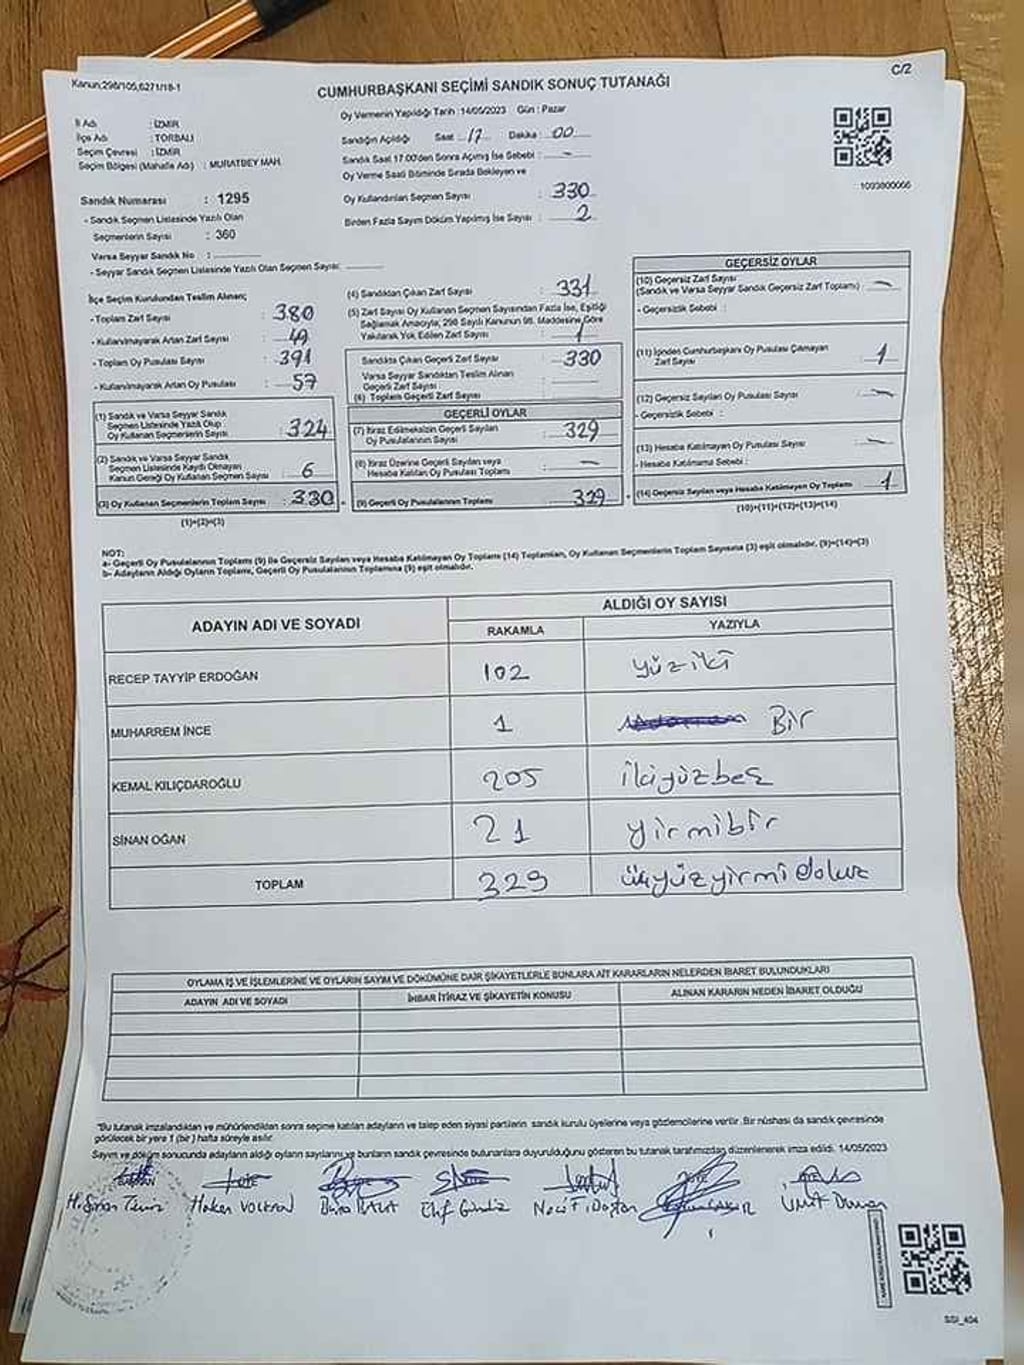 Kanun;298/105,6271/18-1
C/2
CUMHURBAŞKANI SEÇİMİ SANDIK SONUÇ TUTANAĞI
Oy Vermenin Yapıldığı Tarih :14/05/2023 Gün : Pazar
İl Adı : İZMİR
İlçe Adı : TORBALI
Seçim Çevresi : İZMİR
Seçim Bölgesi (Mahalle Adı) : MURATBEY MAH.
Sandığın Açıldığı Saat : 17 Dakika : 00
Sandık Saat 17.00'den Sonra Açımış İse Sebebi : -
Oy Verme Saati Bitiminde Sırada Bekleyen ve
Oy Kullandırılan Seçmen Sayısı : 330
Birden Fazla Sayım Döküm Yapılmış İse Sayısı : 2
: 1093800066
Sandık Numarası : 1295
- Sandık Seçmen Listesinde Yazılı Olan
Seçmenlerin Sayısı : 360
Varsa Seyyar Sandık No :
- Seyyar Sandık Seçmen Listesinde Yazılı Olan Seçmen Sayısı:
İlçe Seçim Kurulundan Teslim Alınan;
- Toplam Zarf Sayısı : 380
- Kullanılmayarak Artan Zarf Sayısı : 49
- Toplam Oy Pusulası Sayısı : 391
- Kullanılmayarak Artan Oy Pusulası : 57
(1) Sandık ve Varsa Seyyar Sandık
Seçmen Listesinde Yazılı Olup
Oy Kullanan Seçmenlerin Sayısı : 324
(2) Sandık ve Varsa Seyyar Sandık
Seçmen Listesinde Kaydı Olmayan
Kanun Gereği Oy Kullanan Seçmen Sayısı : 6
(3) Oy Kullanan Seçmenlerin Toplam Sayısı : 330
(1)+(2)=(3)
(4) Sandıktan Çıkan Zarf Sayısı : 331
(5) Zarf Sayısı Oy Kullanan Seçmen Sayısından Fazla İse, Eşitliği
Sağlamak Amacıyla, 298 Sayılı Kanunun 98. Maddesine Göre
Yakılarak Yok Edilen Zarf Sayısı : 1
Sandıkta Çıkan Geçerli Zarf Sayısı : 330
Varsa Seyyar Sandıktan Teslim Alınan
Geçerli Zarf Sayısı :
(6) Toplam Geçerli Zarf Sayısı :
GEÇERLİ OYLAR
(7) İtiraz Edilmeksizin Geçerli Sayılan
Oy Pusulalarının Sayısı : 329
(8) İtiraz Üzerine Geçerli Sayılan veya
Hesaba Katılan Oy Pusulası Toplamı : -
(9) Geçerli Oy Pusulalarının Toplamı : 329
GEÇERSİZ OYLAR
(10) Geçersiz Zarf Sayısı
(Sandık ve Varsa Seyyar Sandık Geçersiz Zarf Toplamı) : -
- Geçersizlik Sebebi :
(11) İçinden Cumhurbaşkanı Oy Pusulası Çıkmayan
Zarf Sayısı : 1
(12) Geçersiz Sayılan Oy Pusulası Sayısı : -
- Geçersizlik Sebebi :
(13) Hesaba Katılmayan Oy Pusulası Sayısı : -
- Hesaba Katılmama Sebebi :
(14) Geçersiz Sayılan veya Hesaba Katılmayan Oy Toplamı : 1
(10)+(11)+(12)+(13)=(14)
NOT:
a- Geçerli Oy Pusulalarının Toplamı (9) ile Geçersiz Sayılan veya Hesaba Katılmayan Oy Toplamı (14) Toplamları, Oy Kullanan Seçmenlerin Toplam Sayısına (3) eşit olmalıdır. (9)+(14)=(3)
b- Adayların Aldığı Oyların Toplamı, Geçerli Oy Pusulalarının Toplamına (9) eşit olmalıdır.
ADAYIN ADI VE SOYADI
ALDIĞI OY SAYISI
RAKAMLA YAZIYLA
RECEP TAYYİP ERDOĞAN 102 yüziki
MUHARREM İNCE 1 Bir
KEMAL KILIÇDAROĞLU 205 ikiyüzbeş
SİNAN OĞAN 21 yirmibir
TOPLAM 329 üçyüzyirmidokuz
OYLAMA İŞ VE İŞLEMLERİNE VE OYLARIN SAYIM VE DÖKÜMÜNE DAİR ŞİKAYETLERLE BUNLARA AİT KARARLARIN NELERDEN İBARET BULUNDUKLARI
ADAYIN ADI VE SOYADI İHBAR İTİRAZ VE ŞİKAYETİN KONUSU ALINAN KARARIN NEDEN İBARET OLDUĞU
"Bu tutanak imzalandıktan ve mühürlendikten sonra seçime katılan adayların ve talep eden siyasi partilerin sandık kurulu üyelerine veya gözlemcilerine verilir. Bir nüshası da sandık çevresinde
görülecek bir yere 1 (bir) hafta süreyle asılır.
Sayım ve döküm sonucunda adayların aldığı oyların sayılarını ve bunların sandık çevresinde bulunanlara duyurulduğunu gösteren bu tutanak tarafımızdan düzenlenerek imza edildi. 14/05/2023
Hakan Elif Gündüz Necati Ümit Duman
SSI_404